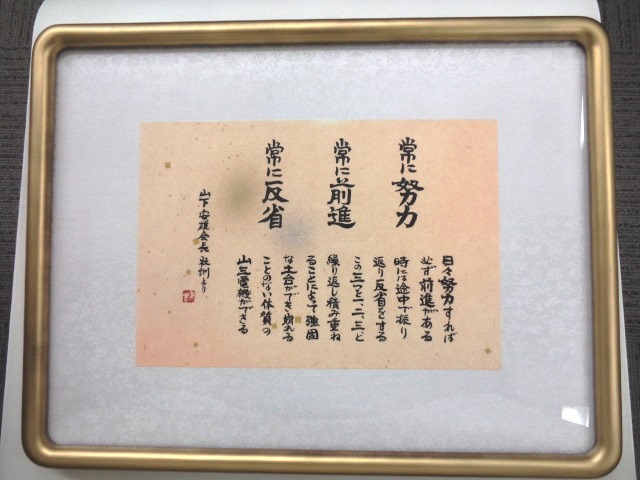 常に努力
常に前進
常に反省
日々努力すれば
必ず前進がある
時には途中で振り
返り反省をする
この三つを一、二、三、と
繰り返し積み重ね
ることによって強固
な土台ができ崩れる
ことのない体質の
山三電機ができる
山下安雄会長 社訓より